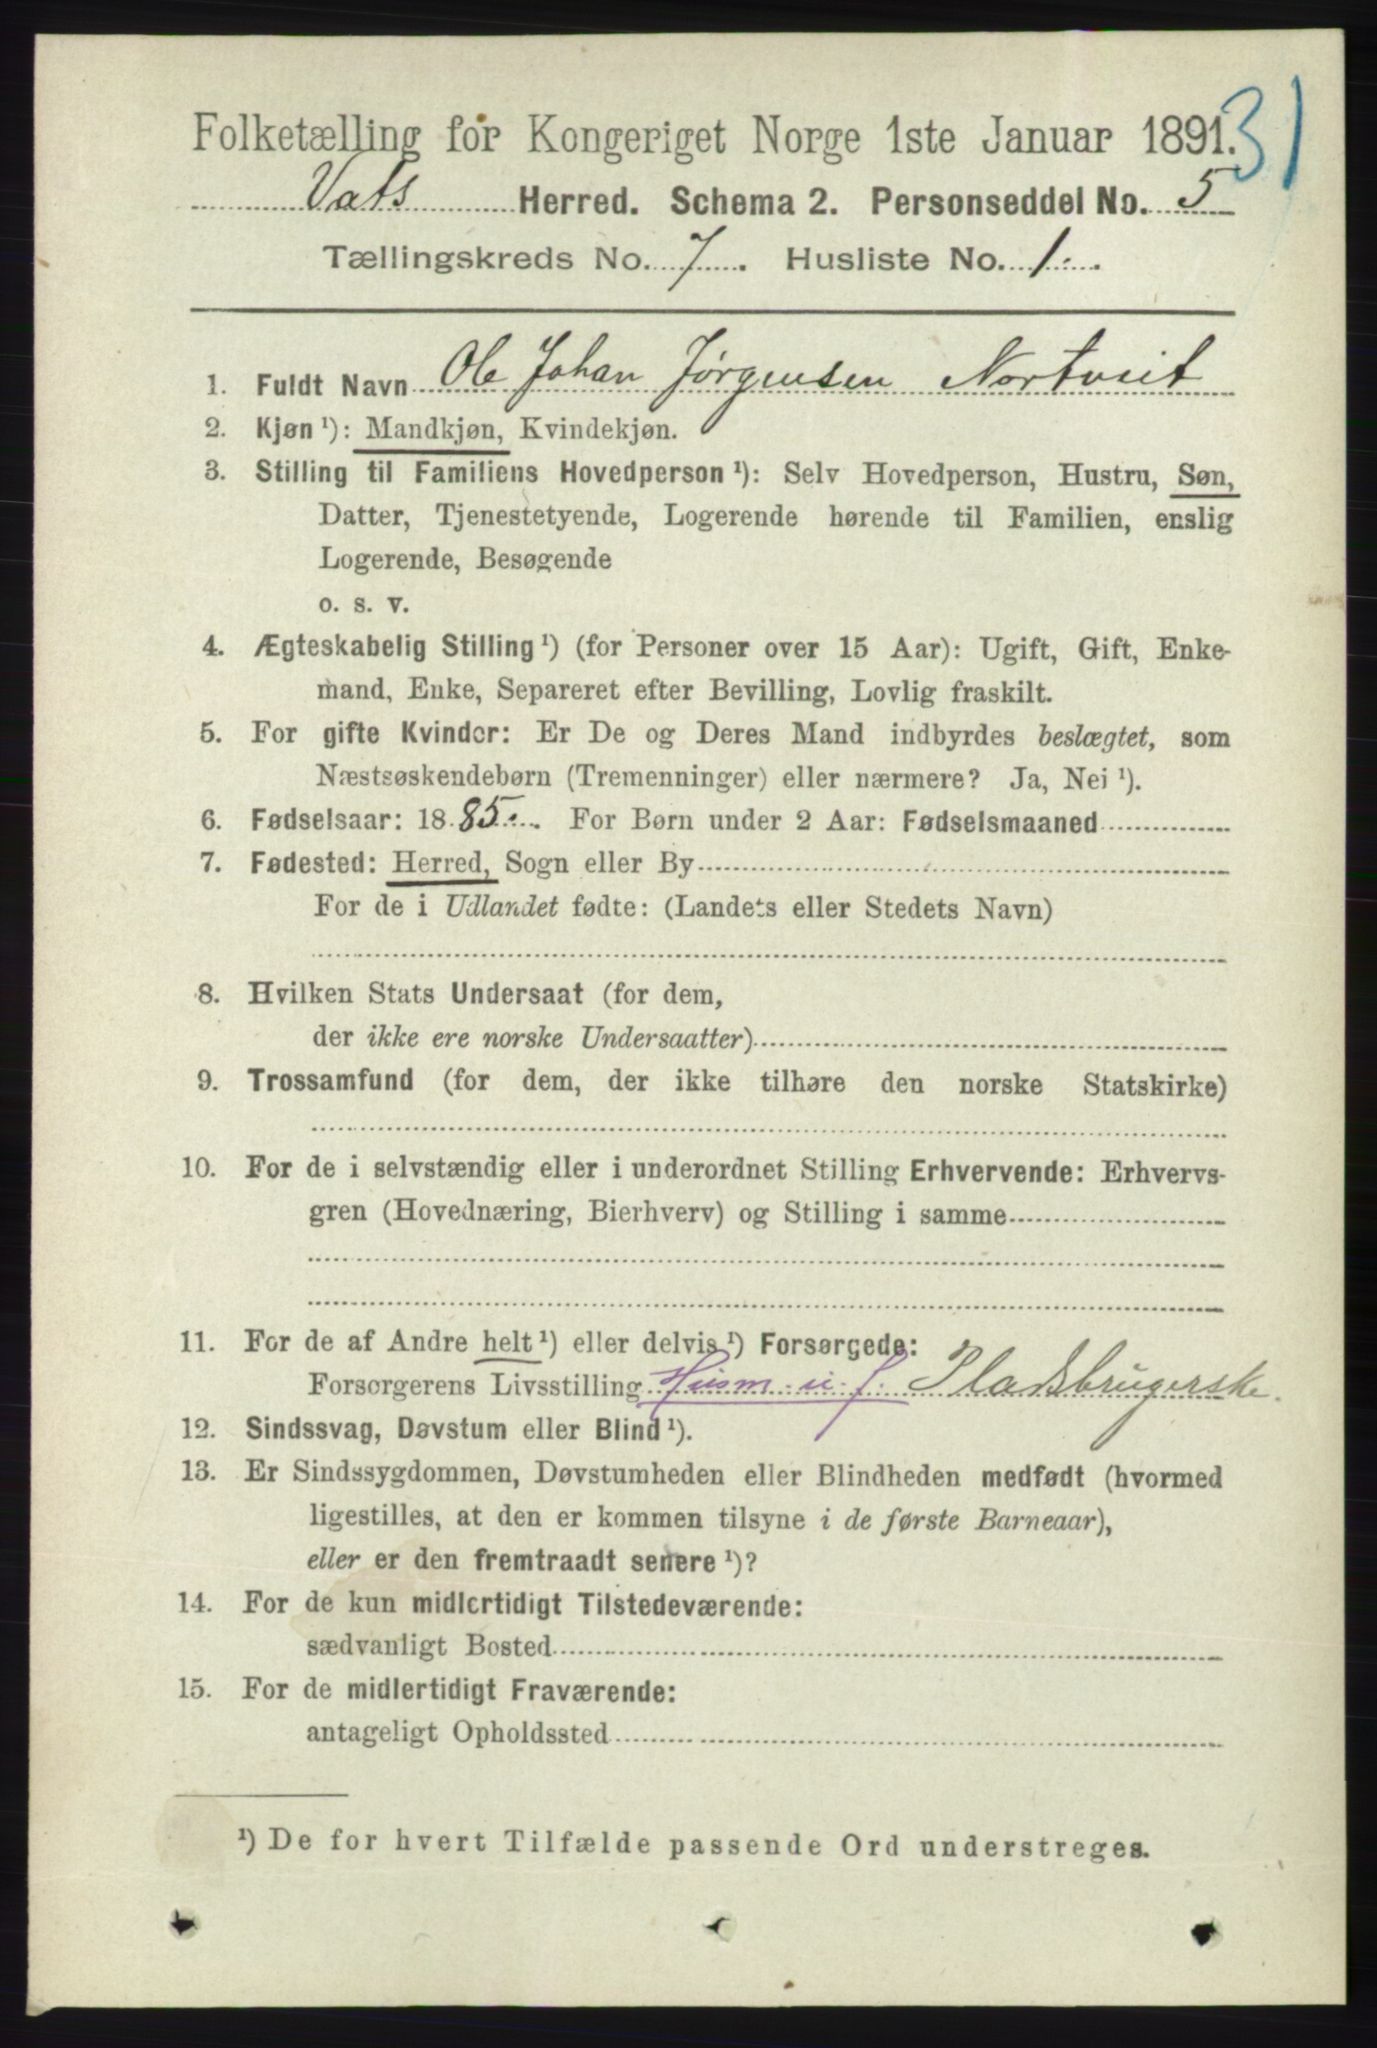 Folketælling for Kongeriget Norge 1ste Januar 1891.
31
Vats Herred. Schema 2. Personseddel No. 5
Tællingskreds No. 7. Husliste No. 1.
1. Fuldt Navn Ole Johan Jørgensen Nortveit
2. Kjøn ¹): Mandkjøn, Kvindekjøn.
3. Stilling til Familiens Hovedperson ¹): Selv Hovedperson, Hustru, Søn,
Datter, Tjenestetyende, Logerende hørende til Familien, enslig
Logerende, Besøgende
o. s. v.
4. Ægteskabelig Stilling ¹) (for Personer over 15 Aar): Ugift, Gift, Enke-
mand, Enke, Separeret efter Bevilling, Lovlig fraskilt.
5. For gifte Kvinder: Er De og Deres Mand indbyrdes beslægtet, som
Næstsøskendebørn (Tremenninger) eller nærmere? Ja, Nei ¹).
6. Fødselsaar: 1885. For Børn under 2 Aar: Fødselsmaaned
7. Fødested: Herred, Sogn eller By
For de i Udlandet fødte: (Landets eller Stedets Navn)
8. Hvilken Stats Undersaat (for dem,
der ikke ere norske Undersaatter)
9. Trossamfund (for dem, der ikke tilhøre den norske Statskirke)
10. For de i selvstændig eller i underordnet Stilling Erhvervende: Erhvervs-
gren (Hovednæring, Bierhverv) og Stilling i samme
11. For de af Andre helt ¹) eller delvis ¹) Forsørgede:
Forsørgerens Livsstilling Husm. u. J. Pladsbrugerske.
12. Sindssvag, Døvstum eller Blind ¹).
13. Er Sindssygdommen, Døvstumheden eller Blindheden medfødt (hvormed
ligestilles, at den er kommen tilsyne i de første Barneaar),
eller er den fremtraadt senere ¹)?
14. For de kun midlertidigt Tilstedeværende:
sædvanligt Bosted
15. For de midlertidigt Fraværende:
antageligt Opholdssted
¹) De for hvert Tilfælde passende Ord understreges.